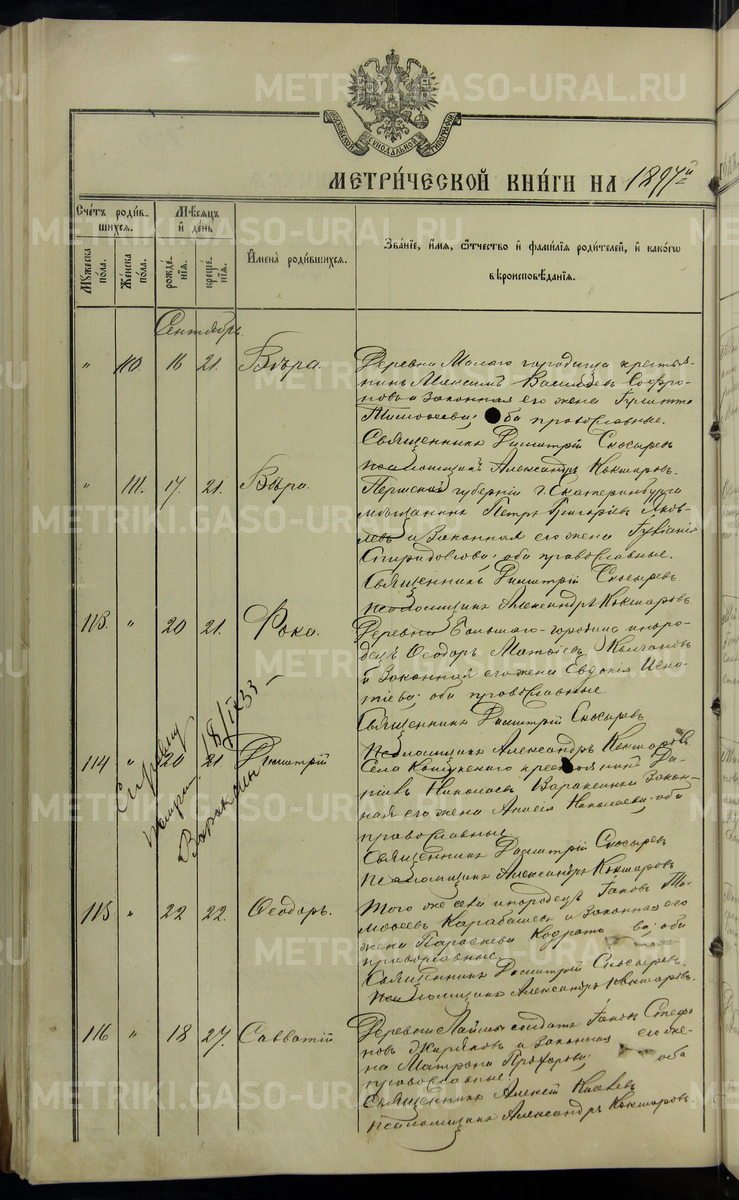 МЕТРИ́ЧЕСКОЙ КНИ́ГИ НА 1897й
Сче́тъ роди́вшихся.
Мѣ́сяцъ и́ де́нь
И҆мена̀ роди́вшихся.
Зва́нїе, и҆́мя, ѻ҆́тчество и҆ фами́лїя роди́телей, и҆ како́гѡ вѣроисповѣ́данїя.
Му́жеска по́ла.
Же́нска по́ла.
рожде́нїя.
креще́нїя.
Сентябрь.
" 110. 16 21. Вѣра.
Деревни Малаго городища крестья-
нинъ Максимъ Васильевъ Софро-
новъ и законная его жена
Тимоѳеева; оба православные.
Священникъ Димитрій Скосыревъ
Псаломщикъ Александръ Кокшаровъ.
" 111. 17. 21. Вѣра.
Пермской губерніи г. Екатеринбурга
мѣщанинъ Петръ Григорьевъ Яков-
левъ и законная его жена
Спиридонова; оба православные.
Священникъ Димитрій Скосыревъ
Псаломщикъ Александръ Кокшаровъ.
113. " 20 21. Фока.
Деревни Большаго-городища иноро-
децъ Ѳеодоръ Матвѣевъ Колчановъ
и законная его жена Евдокія Игна-
тіева; оба православные.
Священникъ Димитрій Скосыревъ
Псаломщикъ Александръ Кокшаровъ.
114 " 20 21 Димитрій
18/IX 33
Села Кошукскаго крестьянинъ
Николаевъ Вараксинъ и закон-
ная его жена Анисія Николаева; оба
православные
Священникъ Димитрій Скосыревъ
Псаломщикъ Александръ Кокшаровъ
115 " 22 22. Ѳеодоръ.
Того же села инородецъ Іаковъ
Карабашевъ и законная его
жена Параскева Кодратова; оба
православные.
Священникъ Димитрій Скосыревъ.
Псаломщикъ Александръ Кокшаровъ.
116 " 18 27. Савватій
Деревни солдатъ Іаковъ Стефа-
новъ Жиряковъ и законная его же-
на Матрона Прохорова; оба
православные.
Священникъ Алексій
Псаломщикъ Александръ Кокшаровъ.
METRIKI.GASO-URAL.RU